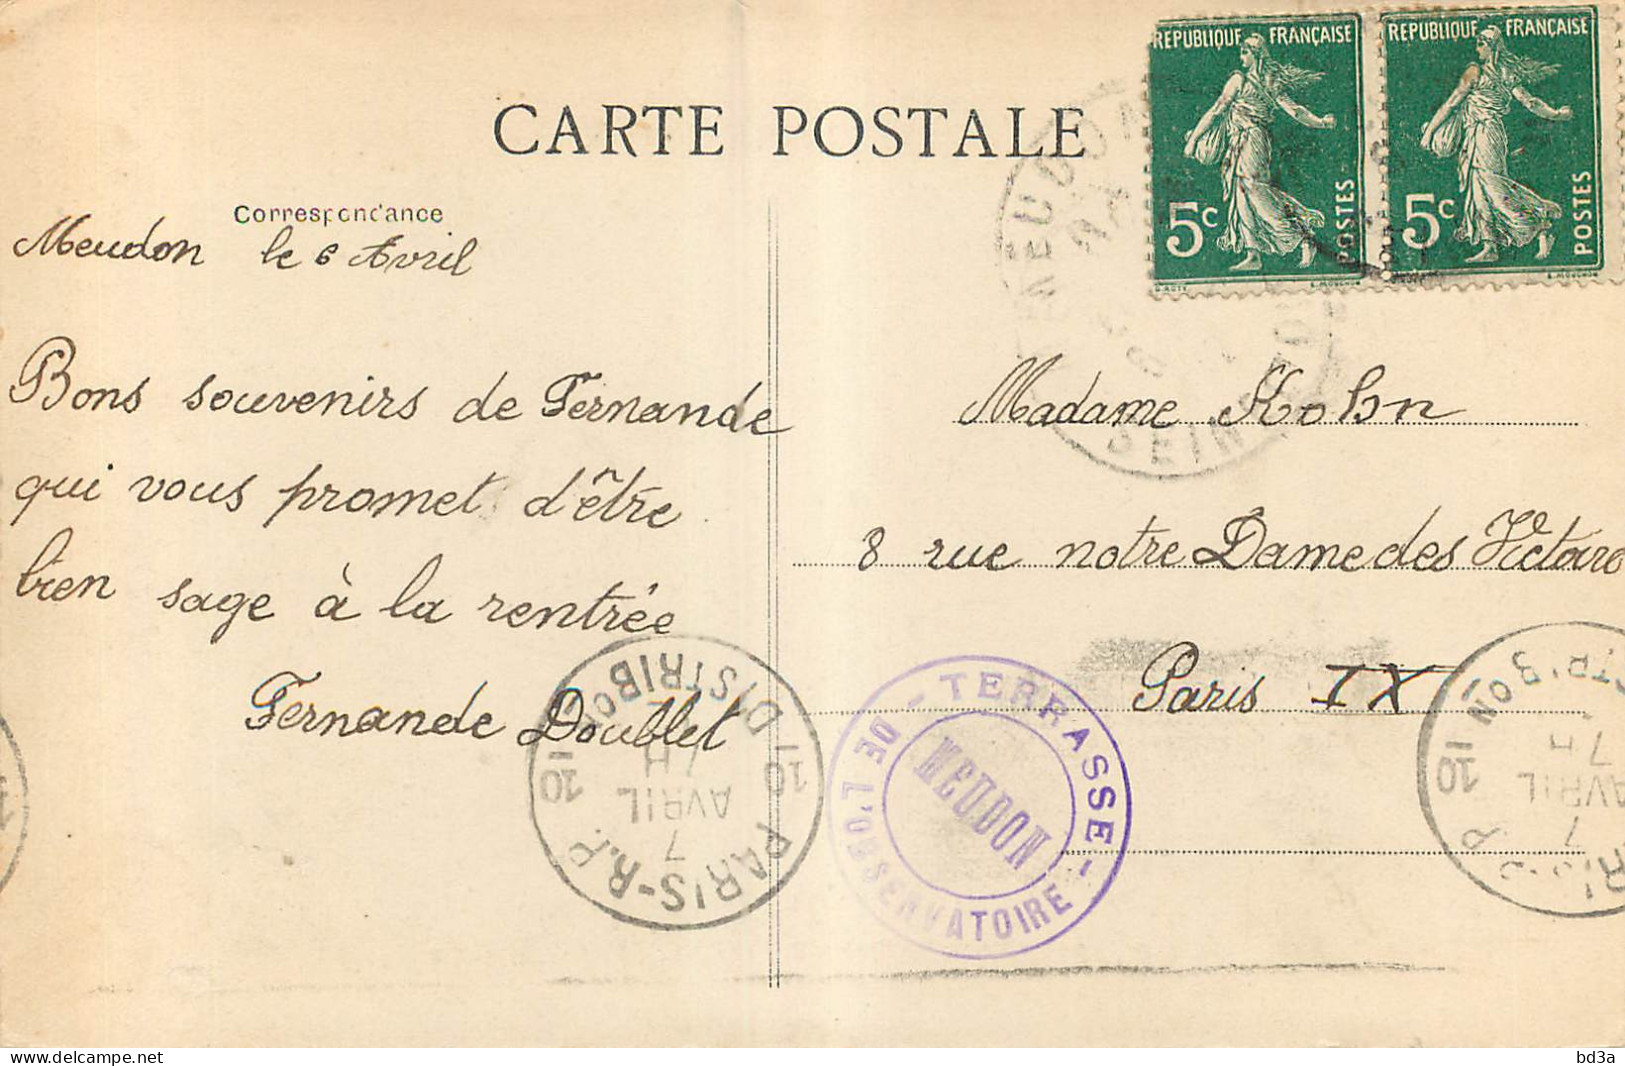 CARTE POSTALE
RÉPUBLIQUE FRANÇAISE
5c
POSTES
E. MOUCHON
RÉPUBLIQUE FRANÇAISE
5c
POSTES
E. MOUCHON
Correspondance
Meudon le 6 Avril
Bons souvenirs de Fernande
qui vous promet d'être
bien sage à la rentrée
Fernande Doublet
Madame Kohn
8 rue notre Dame des Victoire
Paris IX
MEUDON
SEINE
PARIS-R.P. DISTRIBON
10 10
7H
7
AVRIL
- TERRASSE -
DE L'OBSERVATOIRE
MEUDON
10
7H
7
AVRIL
delcampe.net
bd3a